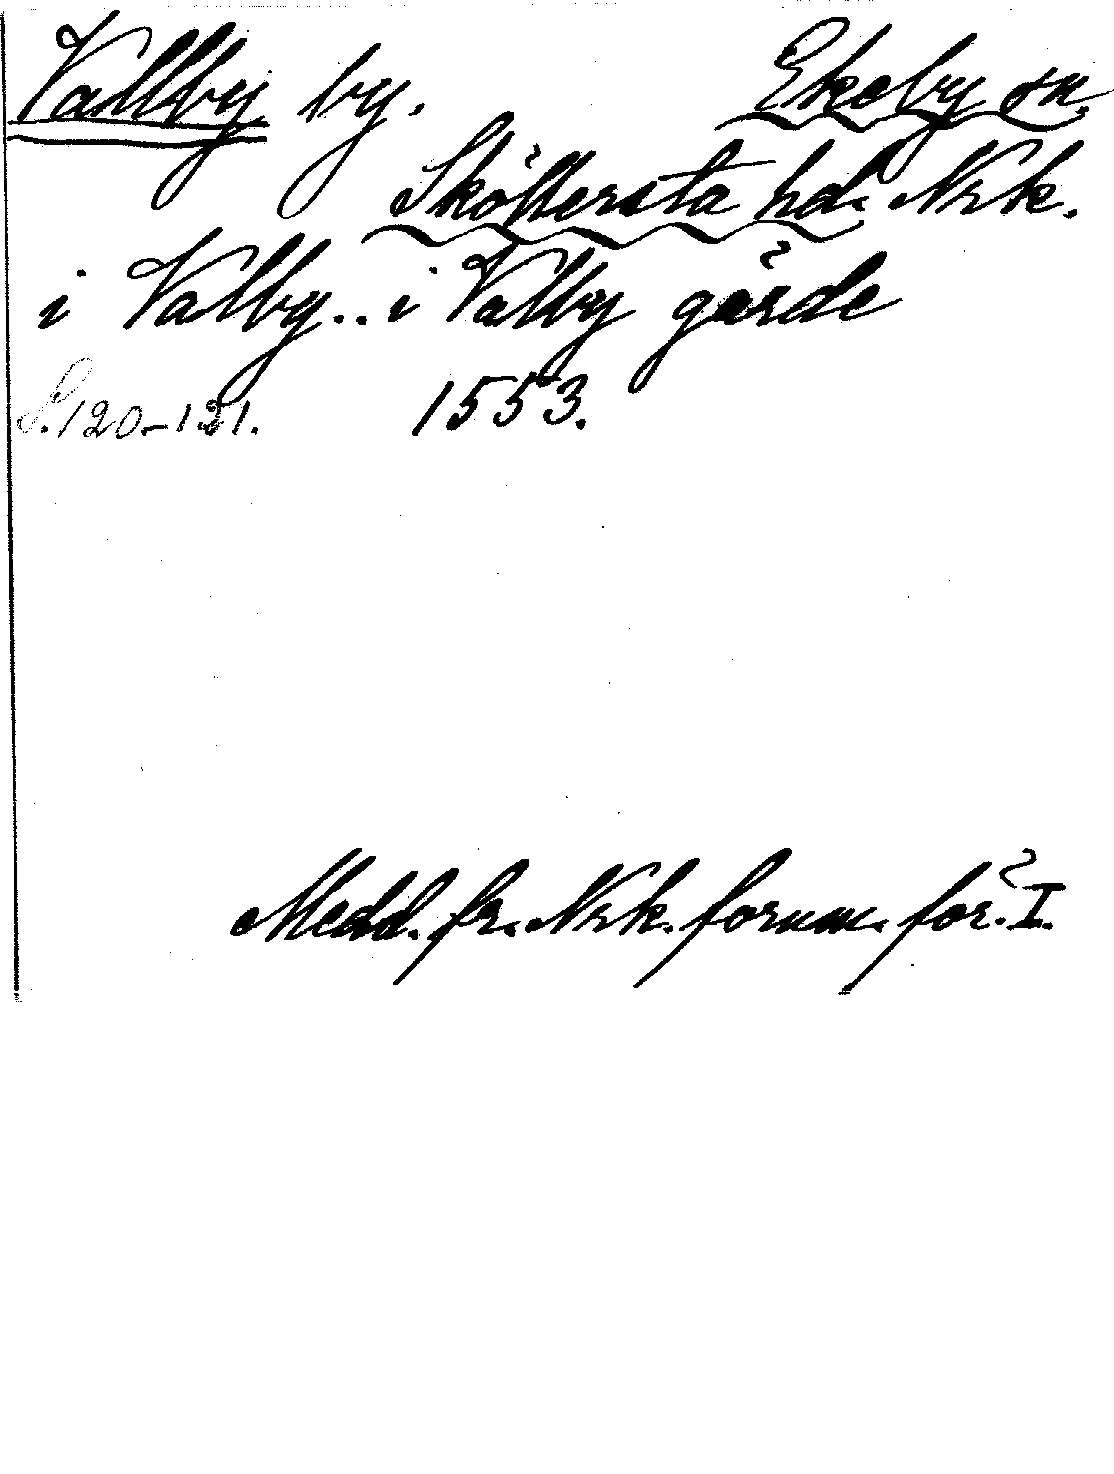 Vallby by. Ekeby sn.
Sköllersta hd. Nrk.
i Valby.. i Valby gärde
S. 120-121. 1553.
Medd. fr. Nrk. fornm. för. I.